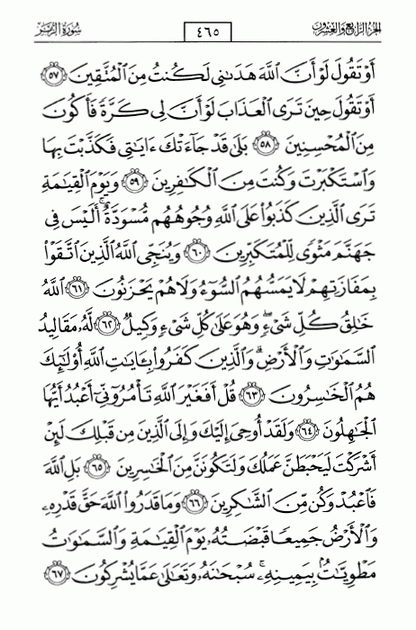 الجزء الرابع والعشرون ٤٦٥ سورة الزمر
أَوْ تَقُولَ لَوْ أَنَّ ٱللَّهَ هَدَىٰنِى لَكُنتُ مِنَ ٱلْمُتَّقِينَ ٥٧
أَوْ تَقُولَ حِينَ تَرَى ٱلْعَذَابَ لَوْ أَنَّ لِى كَرَّةً فَأَكُونَ
مِنَ ٱلْمُحْسِنِينَ ٥٨ بَلَىٰ قَدْ جَآءَتْكَ ءَايَٰتِى فَكَذَّبْتَ بِهَا
وَٱسْتَكْبَرْتَ وَكُنتَ مِنَ ٱلْكَٰفِرِينَ ٥٩ وَيَوْمَ ٱلْقِيَٰمَةِ
تَرَى ٱلَّذِينَ كَذَبُوا۟ عَلَى ٱللَّهِ وُجُوهُهُم مُّسْوَدَّةٌ ۚ أَلَيْسَ فِى
جَهَنَّمَ مَثْوًى لِّلْمُتَكَبِّرِينَ ٦٠ وَيُنَجِّى ٱللَّهُ ٱلَّذِينَ ٱتَّقَوْا۟
بِمَفَازَتِهِمْ لَا يَمَسُّهُمُ ٱلسُّوٓءُ وَلَا هُمْ يَحْزَنُونَ ٦١ ٱللَّهُ
خَٰلِقُ كُلِّ شَىْءٍ ۖ وَهُوَ عَلَىٰ كُلِّ شَىْءٍ وَكِيلٌ ٦٢ لَّهُۥ مَقَالِيدُ
ٱلسَّمَٰوَٰتِ وَٱلْأَرْضِ ۗ وَٱلَّذِينَ كَفَرُوا۟ بِـَٔايَٰتِ ٱللَّهِ أُو۟لَٰٓئِكَ
هُمُ ٱلْخَٰسِرُونَ ٦٣ قُلْ أَفَغَيْرَ ٱللَّهِ تَأْمُرُوٓنِّىٓ أَعْبُدُ أَيُّهَا
ٱلْجَٰهِلُونَ ٦٤ وَلَقَدْ أُوحِىَ إِلَيْكَ وَإِلَى ٱلَّذِينَ مِن قَبْلِكَ لَئِنْ
أَشْرَكْتَ لَيَحْبَطَنَّ عَمَلُكَ وَلَتَكُونَنَّ مِنَ ٱلْخَٰسِرِينَ ٦٥ بَلِ ٱللَّهَ
فَٱعْبُدْ وَكُن مِّنَ ٱلشَّٰكِرِينَ ٦٦ وَمَا قَدَرُوا۟ ٱللَّهَ حَقَّ قَدْرِهِۦ
وَٱلْأَرْضُ جَمِيعًا قَبْضَتُهُۥ يَوْمَ ٱلْقِيَٰمَةِ وَٱلسَّمَٰوَٰتُ
مَطْوِيَّٰتٌۢ بِيَمِينِهِۦ ۚ سُبْحَٰنَهُۥ وَتَعَٰلَىٰ عَمَّا يُشْرِكُونَ ٦٧